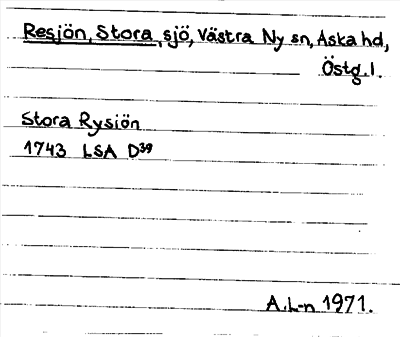 Resjön, Stora, sjö, Västra Ny sn, Aska hd,
Östg. l.
Stora Rysiön
1743 LSA D39
A.L-n 1971.